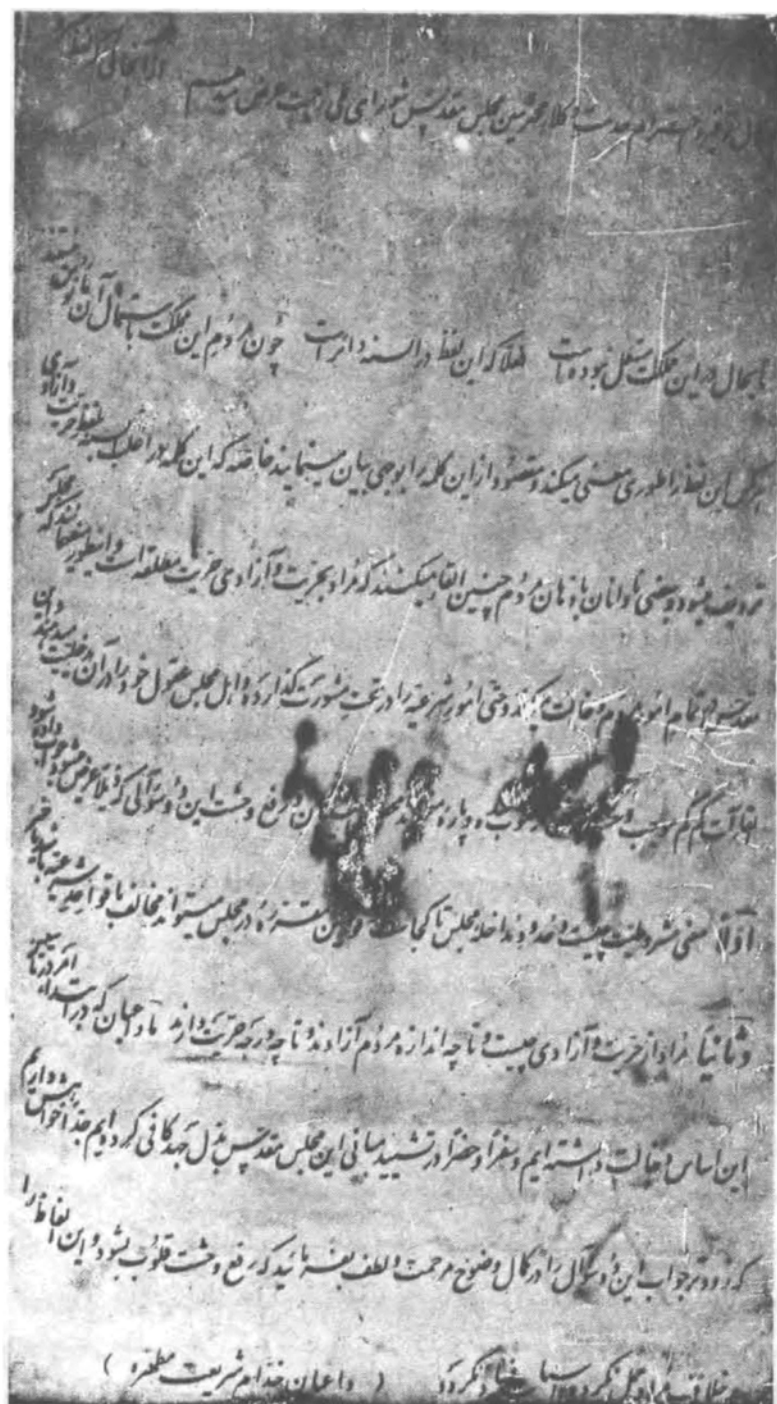 کمال توقیر و احترام خدمت وکلای محترمین مجلس مقدس شورای ملی زحمت عرض میدهیم از آنجائی که لفظ
تا بحال در این مملکت مستعمل نبوده است فعلا که این لفظ در السنه دائر است چون مردم این مملکت باستعمال آن مأنوس نیستند
هر کس این لفظ را طوری معنی میکند و مقصود از این کلمه را بوجهی بیان مینمایند خاصه که این کلمه در اغلب السنه بلفظ حریت و آزادی
تردیف میشود و بعضی نادانان باذهان مردم چنین القا میکنند که مراد بحریت و آزادی حریت مطلقه است و اینطور میفهمانند که مجلس
مقدس در تمام امور مردم دخالت میکند و حتی امور شرعیه را در تحت مشورت گذارده و اهل مجلس عقول خود را در آن دخلیت میدهند و این
القاآت کم کم موجب رفع وحشت این دو سؤالی که ذیلا عرض میشود
اولا معنی مشروطیت چیست و حدود مداخله مجلس تا کجاست و قوانین مقرره در مجلس میتواند مخالف با قواعد شرعیه باشد یا خیر
و ثانیا مراد از حریت و آزادی چیست و تا چه اندازه مردم آزادند و تا چه درجه حریت دارند ما داعیان که در ابتداء امر در تأسیس
این اساس دخالت داشته ایم و سفرا و حضرا در تشیید مبانی این مجلس مقدس بذل جهد کافی کرده ایم جدا خواهش داریم
که زودتر جواب این دو سؤال را در کمال وضوح مرحمت و لطف بفرمائید که رفع وحشت قلوب بشود و این الفاظ را
بر خلاف مراد حمل نکرده ( داعیان خدام شریعت مطهره )